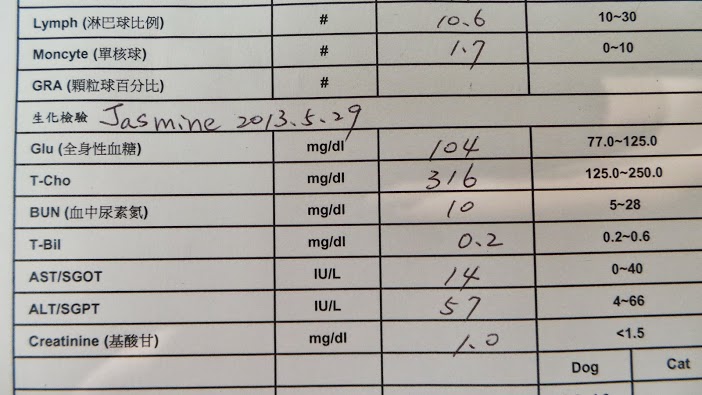 Lymph (淋巴球比例) # 10.6 10~30
Moncyte (單核球) # 1.7 0~10
GRA (顆粒球百分比) #
生化檢驗 Jasmine 2013.5.29
Glu (全身性血糖) mg/dl 104 77.0~125.0
T-Cho mg/dl 316 125.0~250.0
BUN (血中尿素氮) mg/dl 10 5~28
T-Bil mg/dl 0.2 0.2~0.6
AST/SGOT IU/L 14 0~40
ALT/SGPT IU/L 57 4~66
Creatinine (基酸甘) mg/dl 1.0 <1.5
Dog Cat